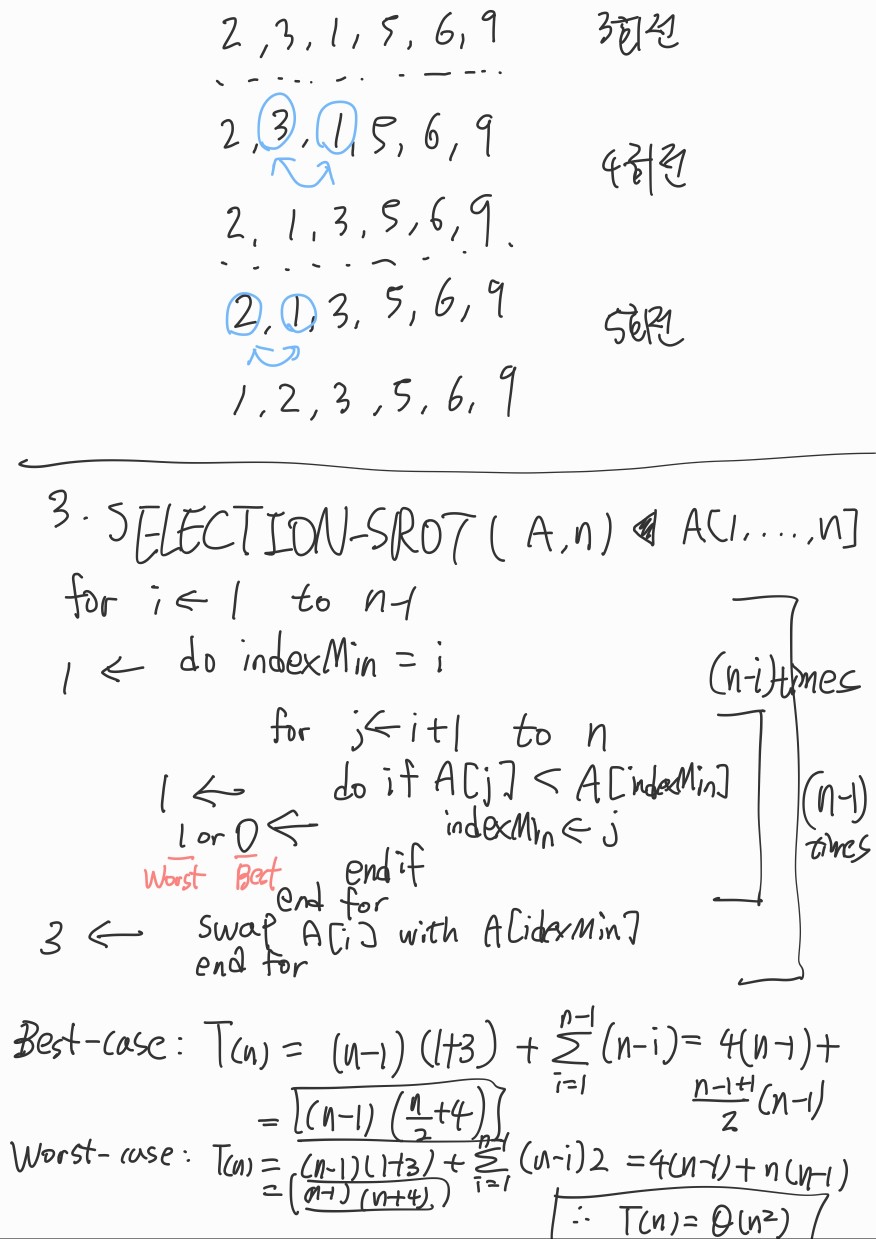 2, 3, 1, 5, 6, 9 3회전
2, 3, 1, 5, 6, 9
4회전
2, 1, 3, 5, 6, 9.
2, 1, 3, 5, 6, 9
5회전
1, 2, 3, 5, 6, 9
3. SELECTION-SROT ( A, n ) ◀ A[1, ...., n]
for i ← 1 to n-1
1 ← do indexMin = i
(n-i) times
for j ← i+1 to n
1 ← do if A[j] < A[indexMin]
(n-1) times
1 or 0 ← indexMin ← j
Worst Best
endif
end for
3 ← swap A[i] with A[idexMin]
end for
Best-case: T(n) = (n-1)(1+3) + ∑_{i=1}^{n-1} (n-i) = 4(n-1) + \frac{n-1+1}{2} (n-1)
= (n-1) (\frac{n}{2}+4)
Worst-case: T(n) = (n-1)(1+3) + ∑_{i=1}^{n-1} (n-i)2 = 4(n-1) + n(n-1)
= (n-1)(n+4)
∴ T(n) = Θ(n²)